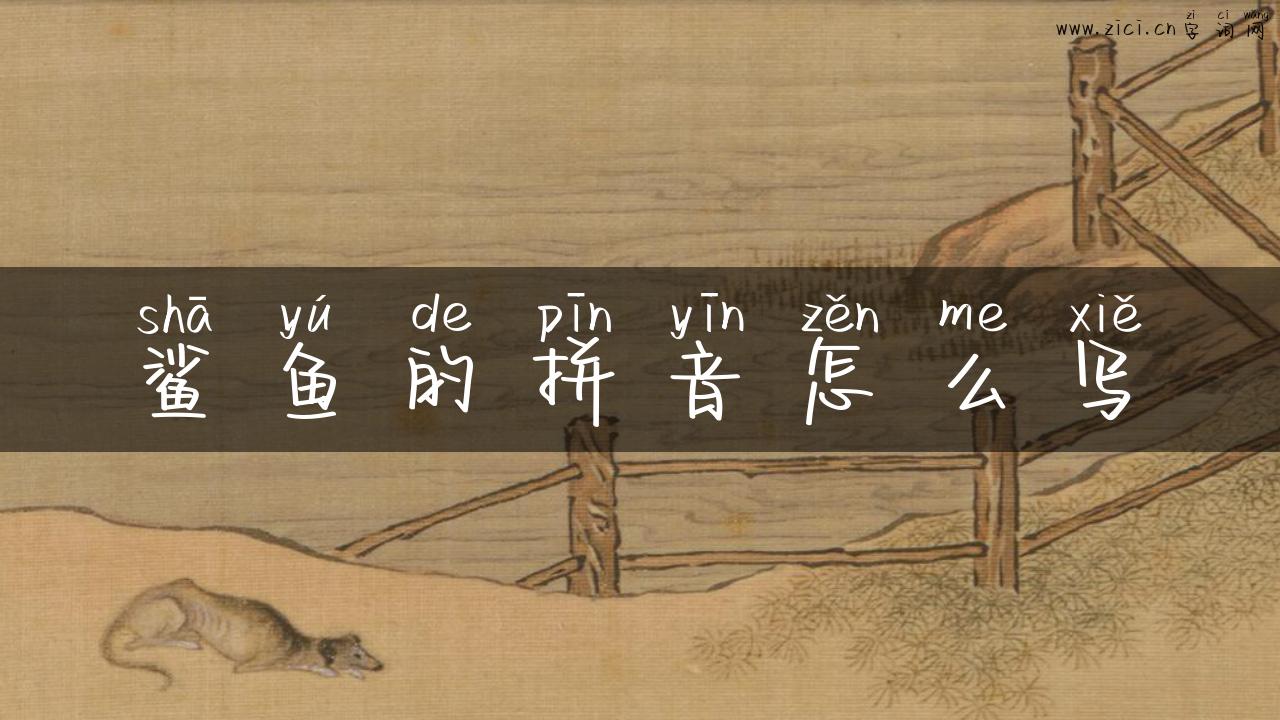 zi ci wang
www.zici.cn 字词网
shā yú de pīn yīn zěn me xiě
鲨鱼的拼音怎么写